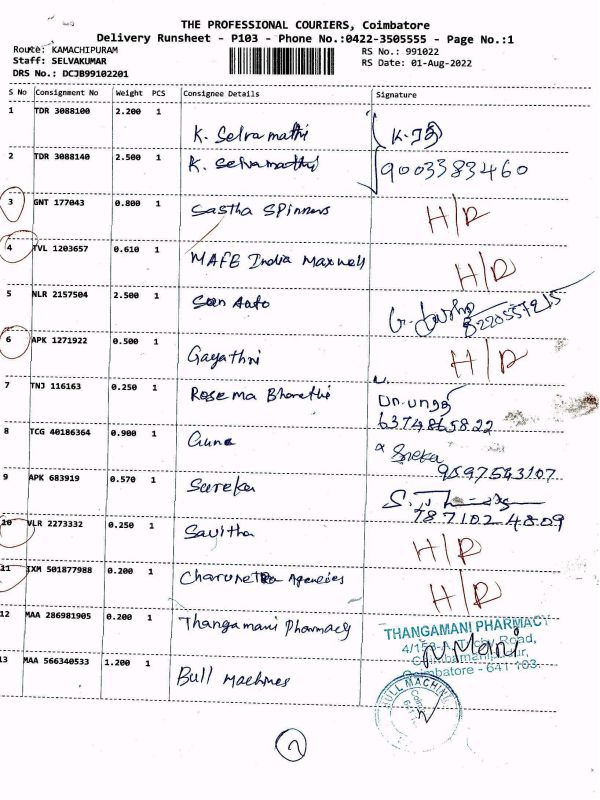 THE PROFESSIONAL COURIERS, Coimbatore
Delivery Runsheet - P103 - Phone No.:0422-3505555 - Page No.:1
Route: KAMACHIPURAM RS No.: 991022
Staff: SELVAKUMAR RS Date: 01-Aug-2022
DRS No.: DCJB99102201
S No Consignment No Weight PCS Consignee Details Signature
1 TDR 3088100 2.200 1 K. Selvamathi
2 TDR 3088140 2.500 1 K. Selvamathi 9003383460
3 GNT 177043 0.800 1 Sastha Spinners H/R
4 TVL 1203657 0.610 1 MAFE India Maxwell H/R
5 NLR 2157504 2.500 1 Sun Auto
6 APK 1271922 0.500 1 Gayathri H/R
7 TNJ 116163 0.250 1 Rose Ma Bharathi
6374865822
8 TCG 40186364 0.900 1 Guna Sneka
9597543107
9 APK 683919 0.570 1 Sureka
787102-4809
10 VLR 2273332 0.250 1 Savitha H/R
11 IXM 501877988 0.200 1 Charunetra Agencies H/R
12 MAA 286981905 0.200 1 Thangamani Pharmacy
THANGAMANI PHARMACY
Road,
Coimbatore - 641 103.
N. Mani
13 MAA 566340533 1.200 1 Bull Machines
BULL MACHINES
2